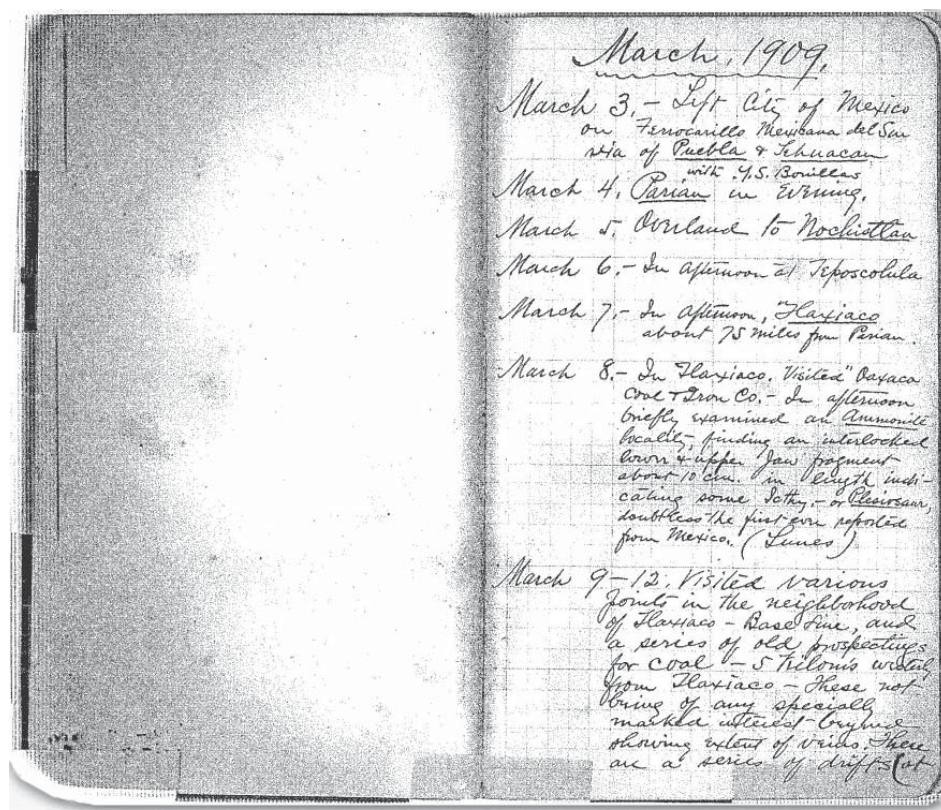 March, 1909.
March 3.- Left City of Mexico
on Ferrocarillo Mexicana del Sur
via of Puebla & Tehuacan
with Y.S. Bonillas
March 4. Parian in Evening.
March 5. Overland to Nochistlan
March 6.- In afternoon at Teposcolula
March 7.- In afternoon, Tlaxiaco
about 75 miles from Parian.
March 8.- In Tlaxiaco. Visited "Oaxaca
Coal & Iron Co.- In afternoon
briefly examined an Ammonite
locality, finding an interlocked
lower & upper Jaw fragment
about 10 cm. in length indi-
cating some Icthy.- or Plesiosaur,
doubtless the first ever reported
from Mexico. (Lunes)
March 9-12. Visited various
points in the neighborhood
of Tlaxiaco - Base Line, and
a series of old prospectings
for coal - 5 kiloms westerly
from Tlaxiaco - These not
being of any specially
marked interest beyond
showing extent of veins. There
are a series of drifts (at